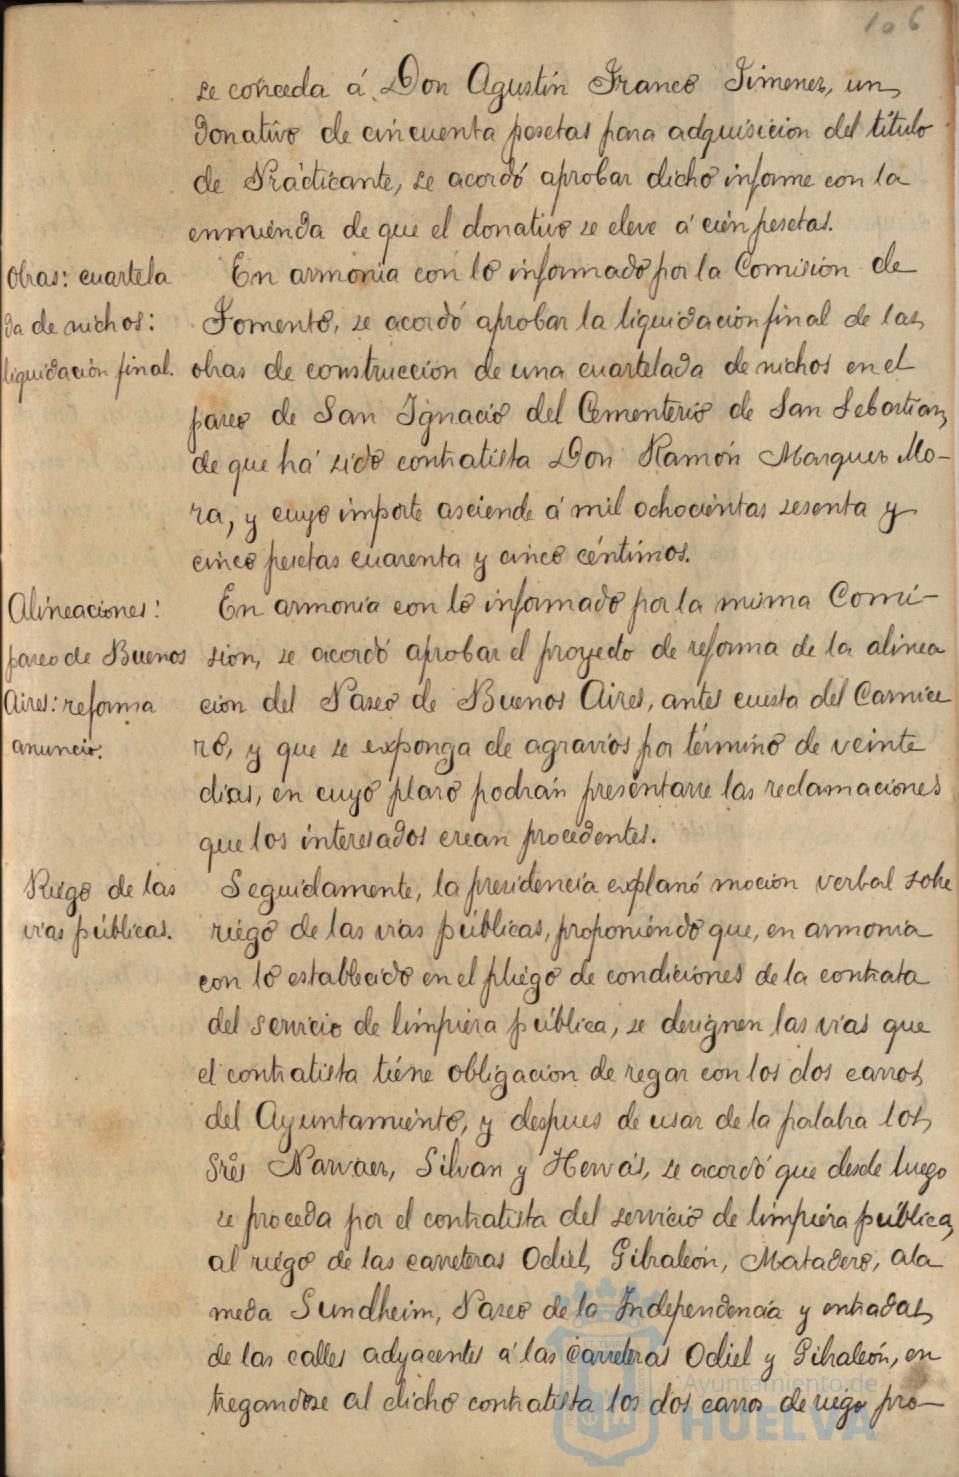 106
se conceda á Don Agustín Franco Jimenez, un
donativo de cincuenta pesetas para adquisicion del título
de Practicante, se acordó aprobar dicho informe con la
enmienda de que el donativo se eleve á cien pesetas.
Obras: cuartela
da de nichos:
liquidación final.
En armonia con lo informado por la Comisión de
Fomento, se acordó aprobar la liquidacion final de las
obras de construccion de una cuartelada de nichos en el
paseo de San Ignacio del Cementerio de San Sebastian,
de que há sido contratista Don Ramón Marquez Mo-
ra, y cuyo importe asciende á mil ochocientas sesenta y
cinco pesetas cuarenta y cinco céntimos.
Alineaciones:
paseo de Buenos
Aires: reforma
anuncio.
En armonia con lo informado por la misma Comi-
sion, se acordó aprobar el proyecto de reforma de la alinea
cion del Paseo de Buenos Aires, antes cuesta del Carnice
ro, y que se exponga de agravios por término de veinte
dias, en cuyo plazo podrán presentarse las reclamaciones
que los interesados crean procedentes.
Riego de las
vias públicas.
Seguidamente, la presidencia explanó mocion verbal sobre
riego de las vias públicas, proponiendo que, en armonia
con lo establecido en el pliego de condiciones de la contrata
del servicio de limpieza pública, se designen las vias que
el contratista tiene obligacion de regar con los dos carros
del Ayuntamiento, y despues de usar de la palabra los
Sres Narvaez, Silvan y Hervás, se acordó que desde luego
se proceda por el contratista del servicio de limpieza pública,
al riego de las carreteras Odiel, Gibraleón, Matadero, ala
meda Sundheim, Paseo de la Independencia y entradas
de las calles adyacentes á las Carreteras Odiel y Gibraleón, en
tregandose al dicho contratista los dos carros de riego pro-
Ayuntamiento de
HUELVA